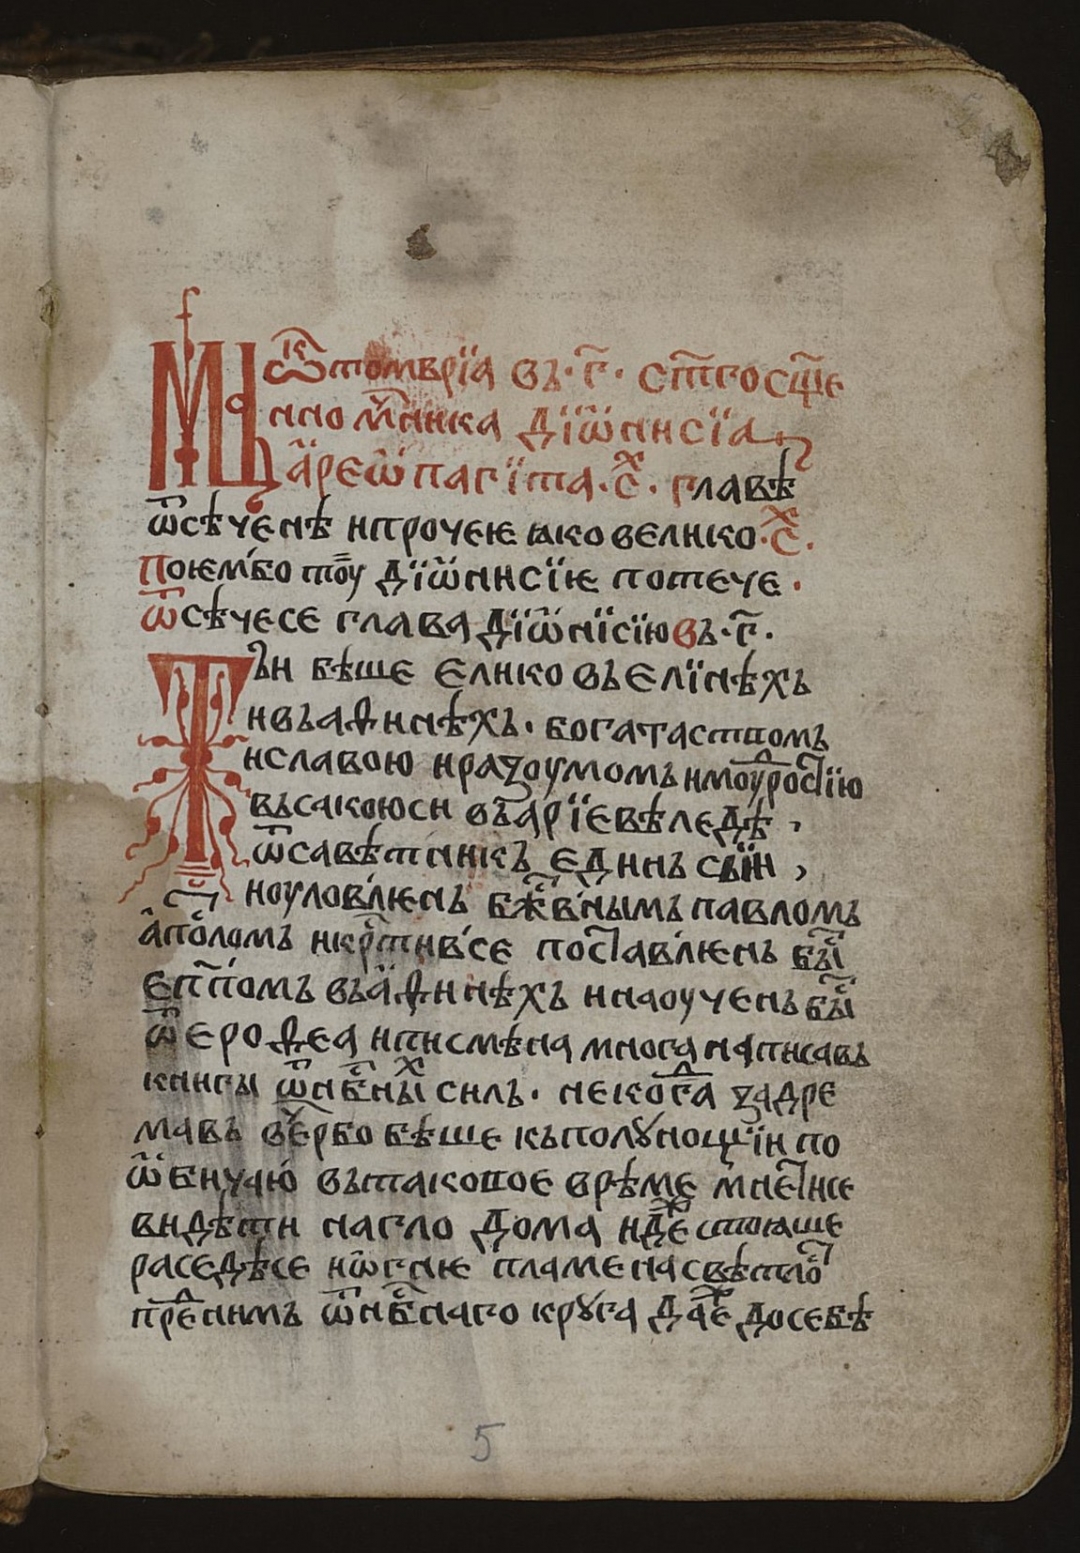 Мца ѡ҆к҃томврїа въ·г҃· ст҃госщ҃е
нно мч҃нка дїѡ҆нисїа
а҆реѡ҆пагїта·с҃х· главѣ
ѿсѣченѣ ипрочеѥ ꙗко велико·с҃х·
Поѥм́бо то҃у дїѡ҆нисїѥ потече·
ѿсѣчесе глава дїѡ҆нїсїю въ·г҃·
Тъи бѣше елико въелїнѣхъ
ивъаѳинѣхъ· богатаствомъ
иславою иразоумомъ имоуⷣросⷮїю
въсакоюси въ҆арїевѣледѣ ,
ѿсавѣтникъ единъ сыи ,
сц҃ ноуловлѥнъ бж҃ⷭв́нымъ павломъ
а҆пⷭ҇оломъ икрⷭ҇тив́се посⷮавлѥнъ быⷭ҇
еп҃пⷭомъ въа҆ѳинѣхъ инаоученъ быⷭ҇
ѿ еροѳеа иписмѣна многа написавъ
книгы ѿнбⷭ҇ныⷯ силъ· некогⷣа задре
мавъ веч҆ербо бѣше къполꙋнощїи по
ѡ҆бичаю́ вътаковое врѣме мнеⷮисе
видѣти нагло дома идеⷤ стоꙗше
раседѣсе иѡ҆гнѥ пламенасвѣтлоⷭ҇
преⷣнимъ ѿнбⷭ҇наго крꙋга даⷤе досебѣ
5